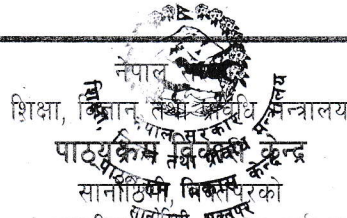 नेपाल सरकार
शिक्षा, विज्ञान तथा प्रविधि मन्त्रालय
पाठ्यक्रम विकास केन्द्र
सानोठिमी, भक्तपुरको